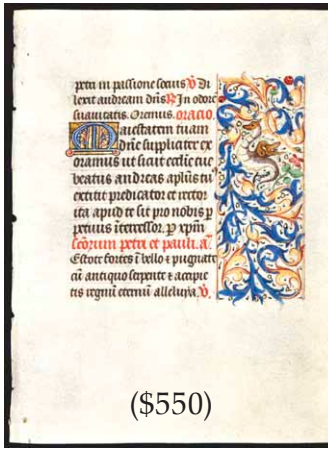 petri in passione socius V Di
lexit andream dñs R In odore
suauitatis. Oremus. oracio.
Maiestatem tuam
dñe suppliciter ex
oramus ut sicut ecclīe tue
beatus andreas aplūs tu
extitit predicator et rector
ita apud te sit pro nobis p
petuus ītercessor. p xpm̄
scōrum petri et pauli. a.
Estote fortes ī bello et pugnate
cū antiquo serpente et accipie
tis regnū eternū alleluya. V.
($550)